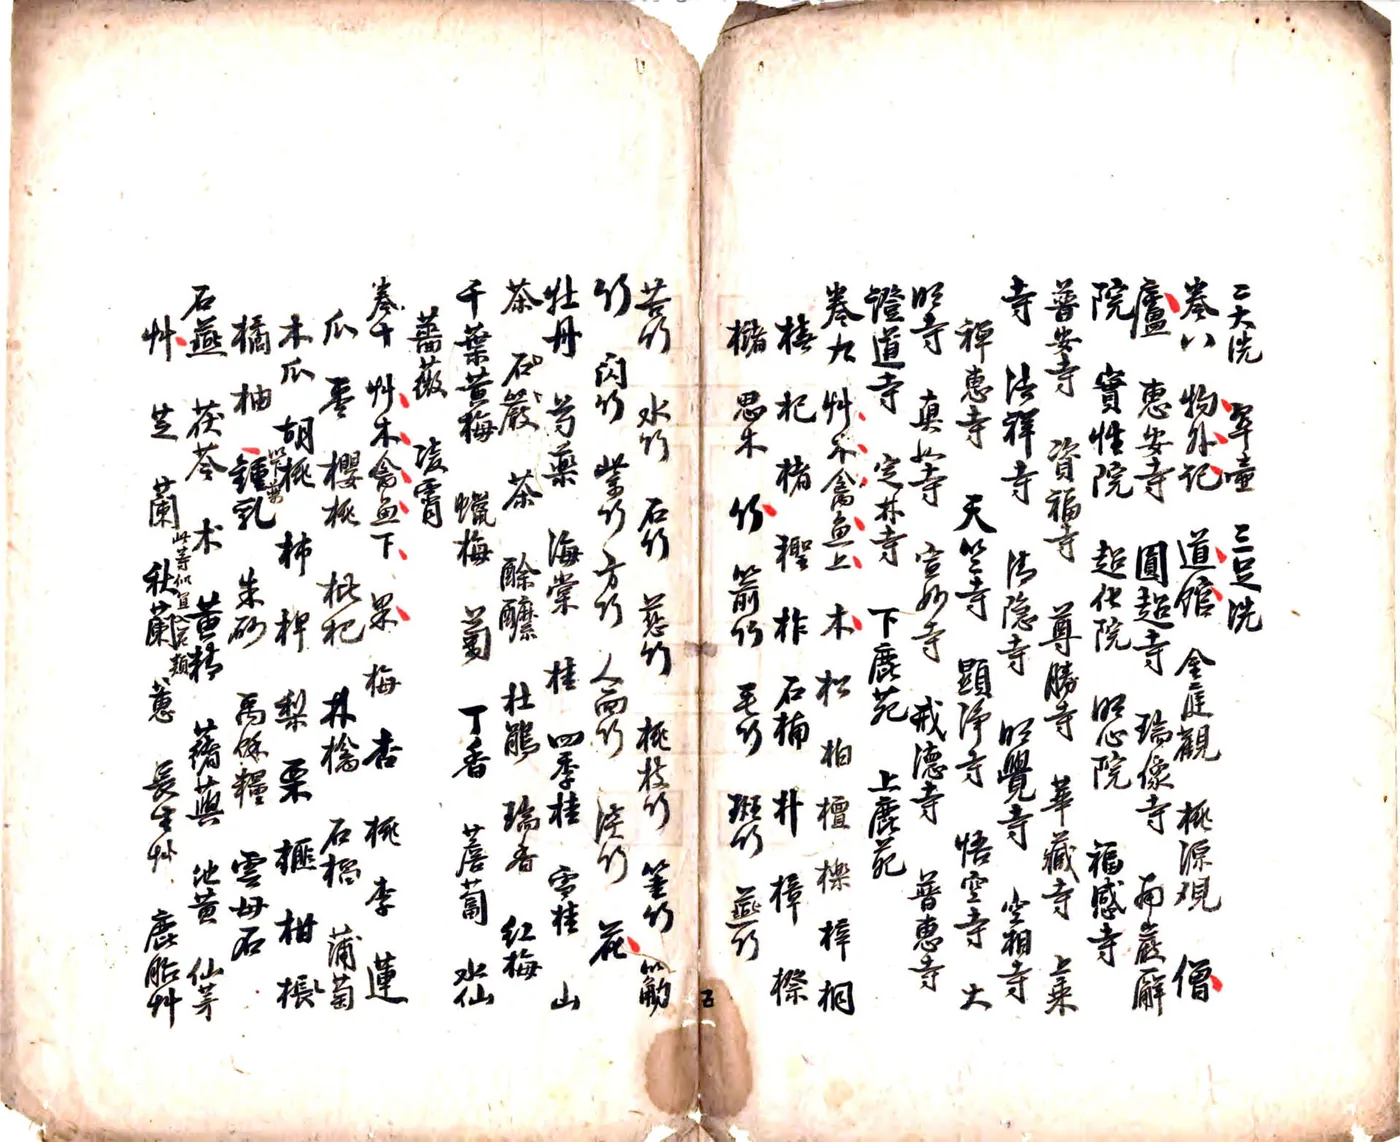 二大洗 單壷 三足洗
卷八 物外記 道館 金庭觀 桃源观 僧
廬 惠安寺 圓超寺 瑞像寺 南巖寺
院 實性院 超化院 明心院 福感寺
普安寺 資福寺 尊勝寺 華藏寺 上乘
寺 法祥寺 清隐寺 明覺寺 空相寺
禅惠寺 天竺寺 顯淨寺 悟空寺 大
明寺 真如寺 宣妙寺 戒德寺 普惠寺
證道寺 定林寺 下鹿苑 上鹿苑
卷九 艸木禽魚上 木 松 柏 檀 櫟 梓 桐
椿 杞 楮 檉 柞 石楠 朴 樟 櫟
櫧 思木 竹 箭竹 毛竹 斑竹 燕竹
苦竹 水竹 石竹 慈竹 桃枝竹 筀竹
竹 闪竹 紫竹 方竹 人面竹 淡竹 花
牡丹 芍藥 海棠 桂 四季桂 雪桂 山
茶 石巖 茶 酴醾 杜鵑 瑞香 红梅
千葉黄梅 蠟梅 菊 丁香 薝蔔 水仙
薔薇 凌霄
卷十 艸木禽魚下 果 梅 杏 桃 李 蓮
瓜 棗 櫻桃 枇杷 林檎 石榴 蒲萄
木瓜 胡桃 柿 椑 梨 栗 榧 柑 棖
橘 柚 鍾乳 朱砂 禹餘糧 雲母石
石燕 茯苓 术 黄精 藷蕷 地黄 仙茅
艸 芝 蘭 此等似宜入花類 秋蘭 蕙 長生艸 鹿胎艸